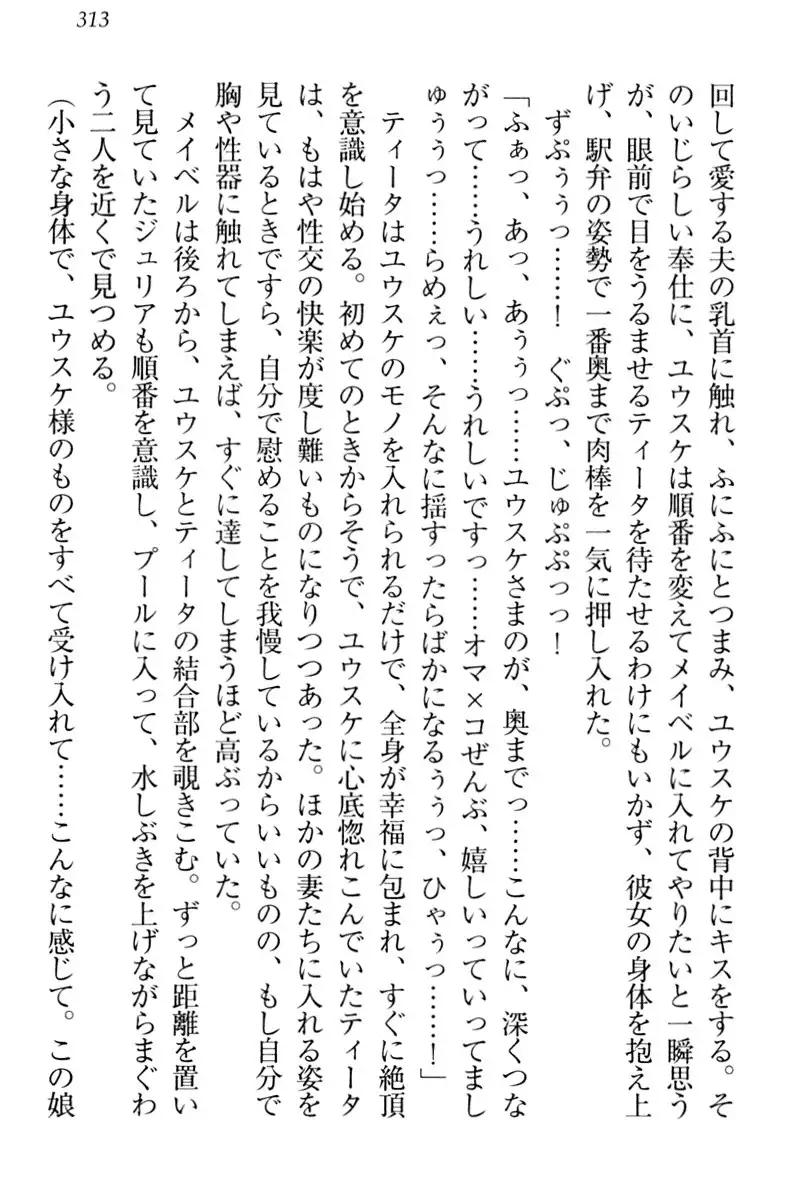 313
回して愛する夫の乳首に触れ、ふにふにとつまみ、ユウスケの背中にキスをする。そ
のいじらしい奉仕に、ユウスケは順番を変えてメイベルに入れてやりたいと一瞬思う
が、眼前で目をうるませるティータを待たせるわけにもいかず、彼女の身体を抱え上
げ、駅弁の姿勢で一番奥まで肉棒を一気に押し入れた。
ずぷぅぅっ……！　ぐぷっ、じゅぷぷっっ！
「ふぁっ、あっ、あぅぅっ……ユウスケさまのが、奥までっ……こんなに、深くつな
がって……うれしい……うれしいですっ……オマ×コぜんぶ、嬉しいっていってまし
ゅぅぅっ……らめぇっ、そんなに揺すったらばかになるぅぅっ、ひゃぅっ……！」
ティータはユウスケのモノを入れられるだけで、全身が幸福に包まれ、すぐに絶頂
を意識し始める。初めてのときからそうで、ユウスケに心底惚れこんでいたティータ
は、もはや性交の快楽が度し難いものになりつつあった。ほかの妻たちに入れる姿を
見ているときですら、自分で慰めることを我慢しているからいいものの、もし自分で
胸や性器に触れてしまえば、すぐに達してしまうほど高ぶっていた。
メイベルは後ろから、ユウスケとティータの結合部を覗きこむ。ずっと距離を置い
て見ていたジュリアも順番を意識し、プールに入って、水しぶきを上げながらまぐわ
う二人を近くで見つめる。
（小さな身体で、ユウスケ様のものをすべて受け入れて……こんなに感じて。この娘